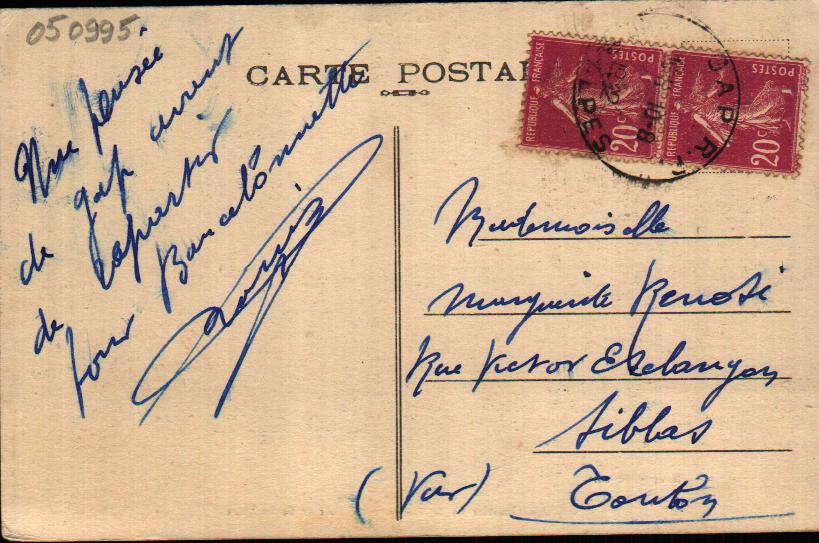 050995.
CARTE POSTAL
REPUBLIQUE FRANÇAISE
POSTES
20c
REPUBLIQUE FRANÇAISE
POSTES
20c
GAP R.P.
ALPES
Une pensée
de gap avant
de repartir
pour Barcelonnette
Mademoiselle
Marguerite Renosi
Rue Victor Esclangon
Siblas
Toulon
(Var)